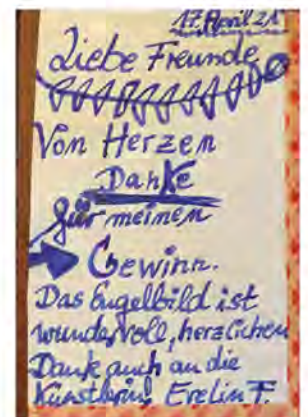 17. April 21
Liebe Freunde
Von Herzen
Danke
für meinen
Gewinn.
Das Engelbild ist
wundervoll, herzlichen
Dank auch an die
Künstlerin! Evelin F.